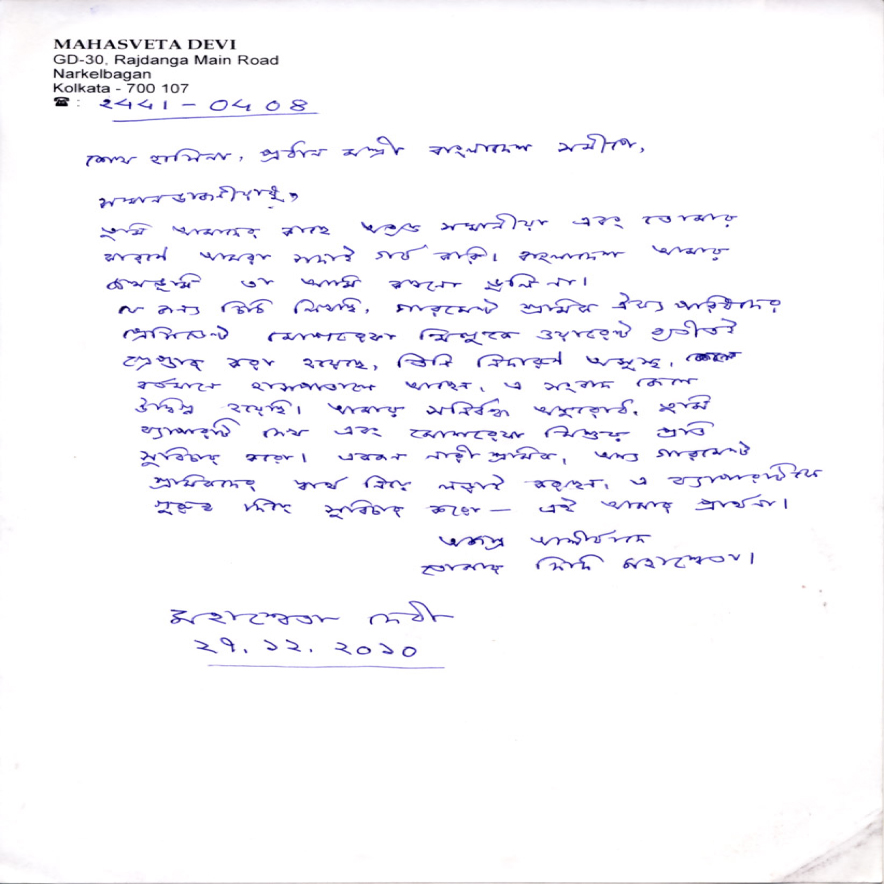 MAHASVETA DEVI
GD-30, Rajdanga Main Road
Narkelbagan
Kolkata - 700 107
☎ : ২৪৪১ - ০৪০৪
শেখ হাসিনা, প্রধান মন্ত্রী বাংলাদেশ সমীপে,
সম্মানভাজনীয়াষু,
তুমি আমাদের কাছে অত্যন্ত সম্মানীয়া এবং তোমার
কারণে আমরা সদাই গর্ব করি। বাংলাদেশ আমার
জন্মভূমি তা আমি কখনো ভুলি না।
এ জন্য চিঠি লিখছি, গারমেন্ট শ্রমিক ঐক্য পরিষদের
প্রেসিডেন্ট মোশরেফা মিশুকে ওয়ারেন্ট ব্যতীতই
গ্রেপ্তার করা হয়েছে, তিনি নিদারুণ অসুস্থ,
বর্তমানে হাসপাতালে আছেন, এ সংবাদ জেনে
উদ্বিগ্ন হয়েছি। আমার সনির্বন্ধ অনুরোধ, তুমি
ব্যাপারটি দেখ এবং মোশরেফা মিশুর প্রতি
সুবিচার করো। একজন নারী শ্রমিক, অন্য গারমেন্ট
শ্রমিকদের স্বার্থ নিয়ে লড়াই করছেন, এ ব্যাপারটিকে
গুরুত্ব দিয়ে সুবিচার করো — এই আমার প্রার্থনা।
অজস্র আশীর্বাদে
তোমার দিদি মহাশ্বেতা।
মহাশ্বেতা দেবী
২৭.১২.২০১০